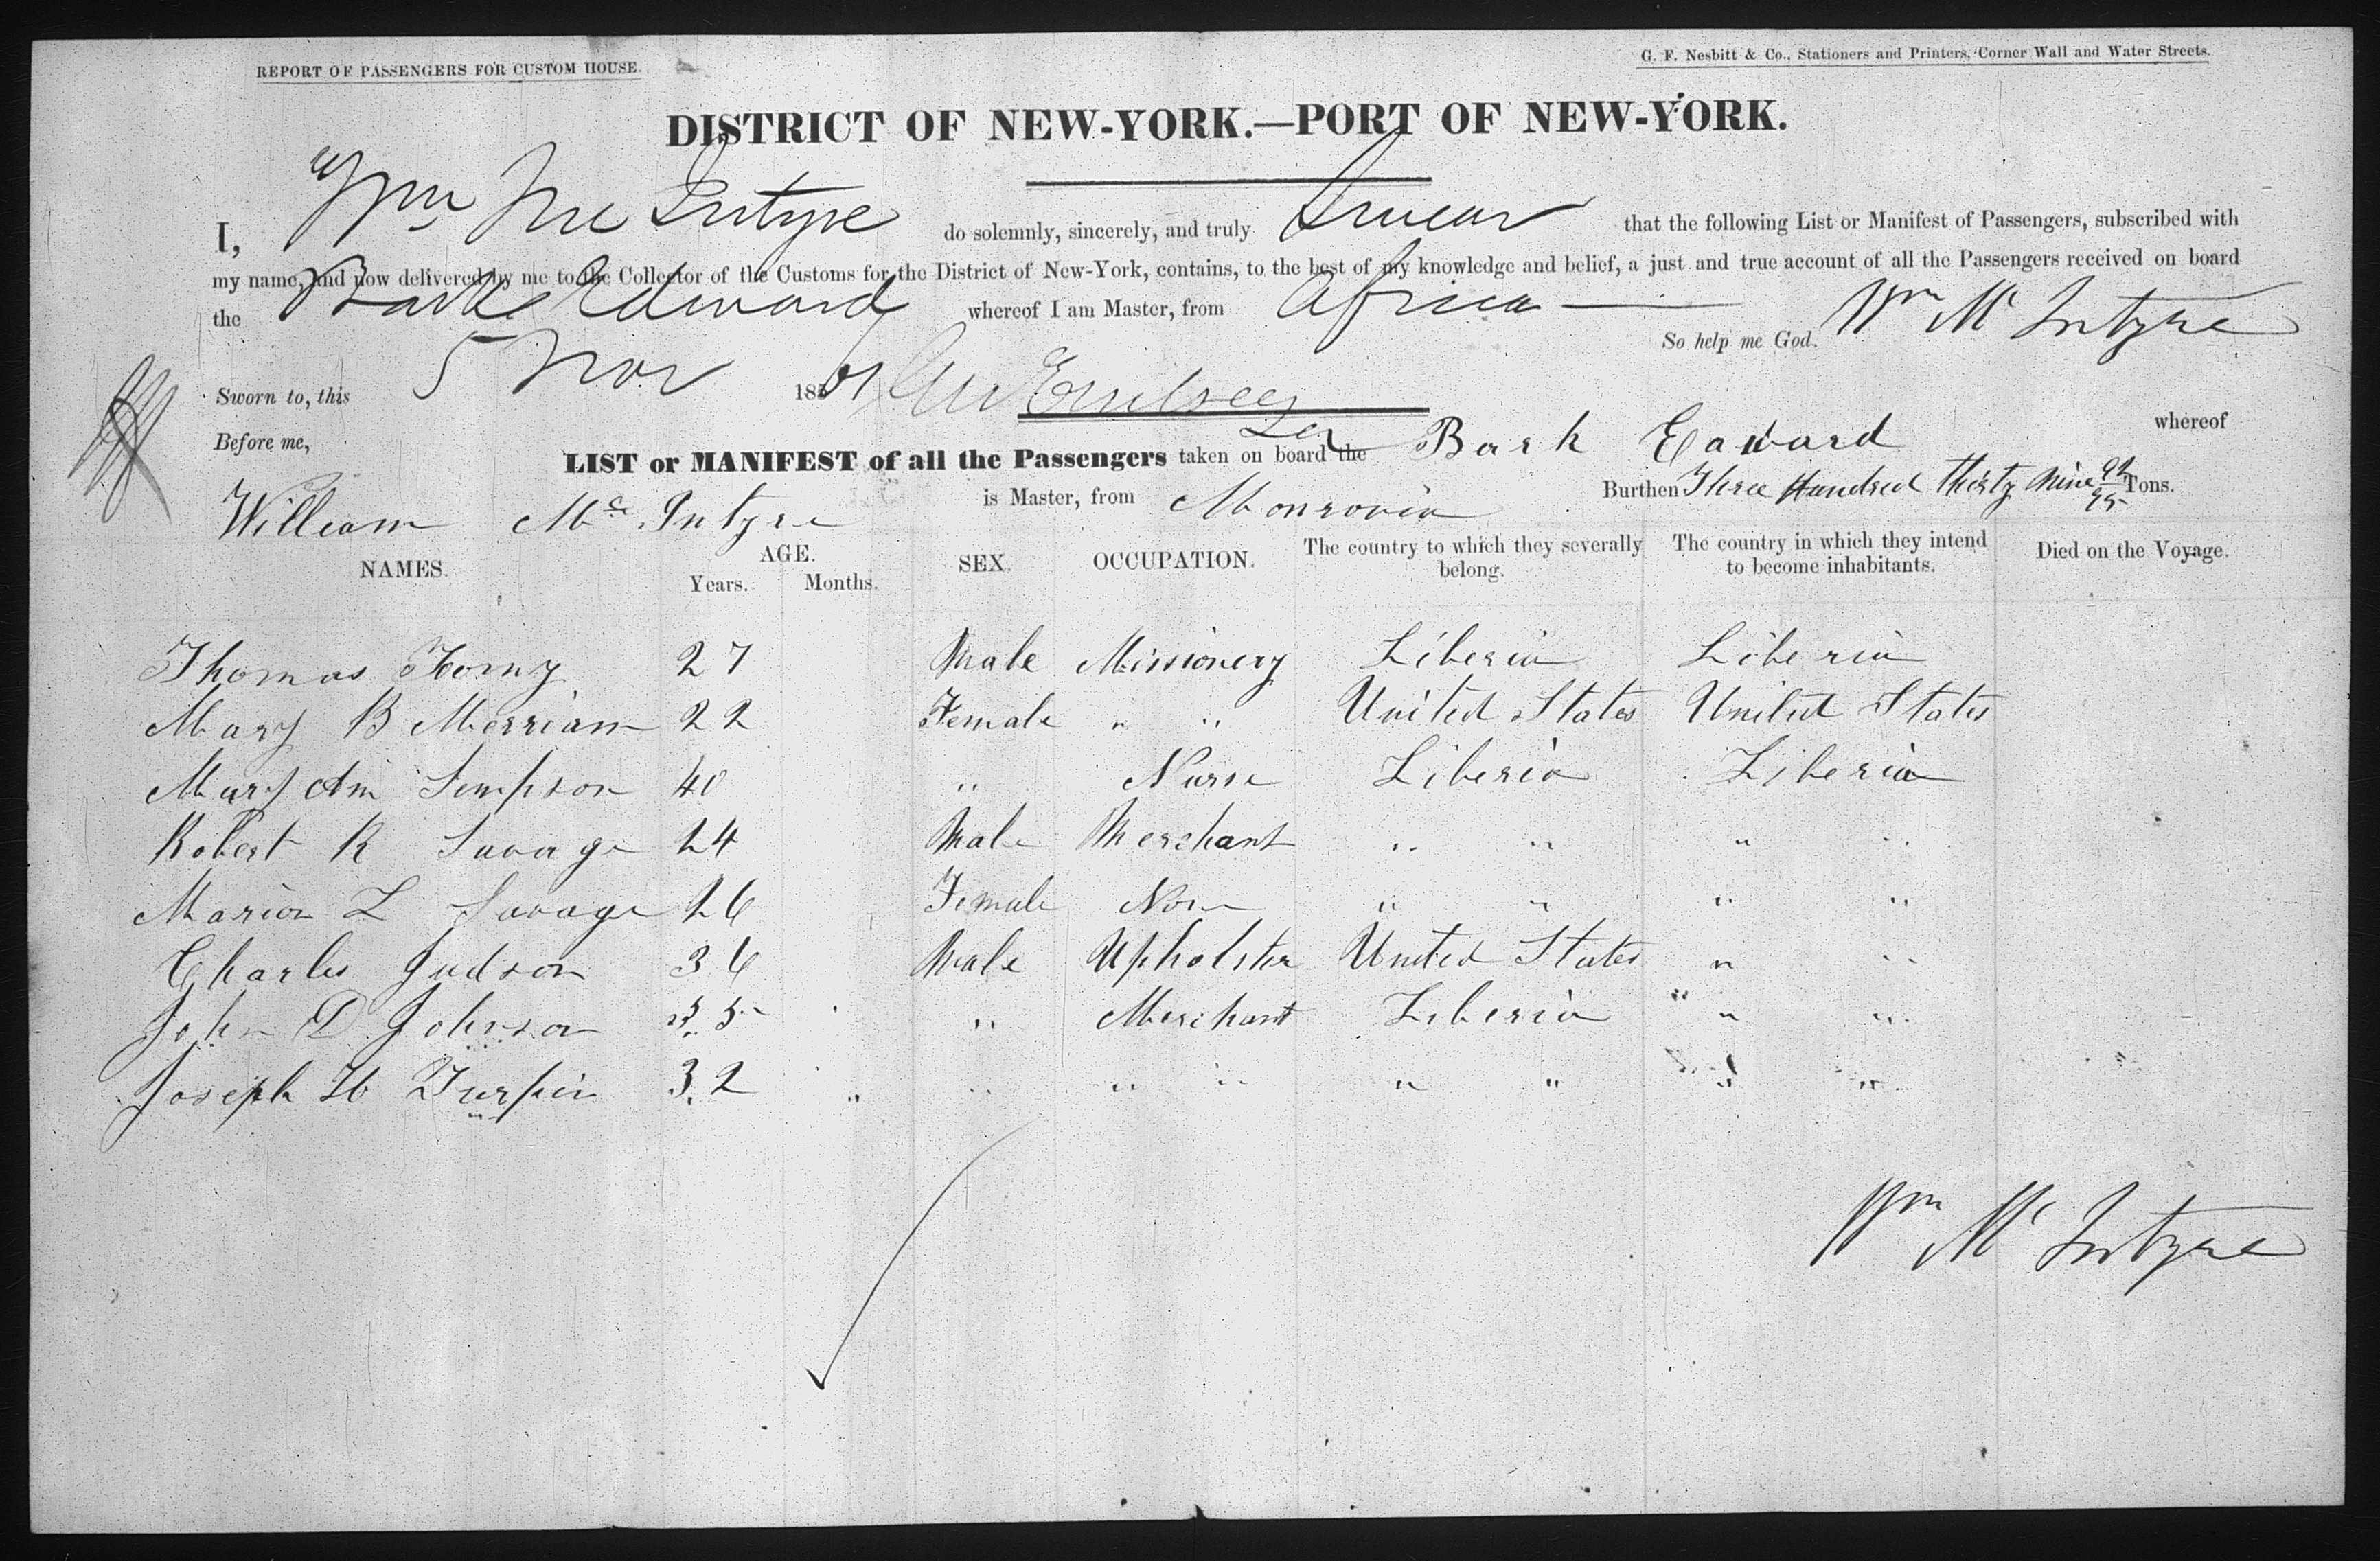 REPORT OF PASSENGERS FOR CUSTOM HOUSE.
G. F. Nesbitt & Co., Stationers and Printers, Corner Wall and Water Streets.
DISTRICT OF NEW-YORK.—PORT OF NEW-YORK.
I, Wm McIntyre do solemnly, sincerely, and truly Swear that the following List or Manifest of Passengers, subscribed with
my name, and now delivered by me to the Collector of the Customs for the District of New-York, contains, to the best of my knowledge and belief, a just and true account of all the Passengers received on board
the Bark Edward whereof I am Master, from Africa
So help me God. Wm McIntyre
Sworn to, this 5 Nov 185
Before me,
LIST or MANIFEST of all the Passengers taken on board the Bark Edward whereof
William McIntyre is Master, from Monrovia Burthen Three Hundred Thirty Nine Tons.
NAMES. AGE. Years. Months. SEX. OCCUPATION. The country to which they severally belong. The country in which they intend to become inhabitants. Died on the Voyage.
Thomas 27 Male Missionery Liberia Liberia
Mary B Merriam 22 Female " " United States United States
Mary Ann Simpson 40 " Nurse Liberia Liberia
Robert R Savage 24 Male Merchant " " " "
Marion L Savage 26 Female None " " " "
Charles Judson 36 Male Upholster United States " "
John D Johnson 35 " Merchant Liberia " "
Joseph H Turpin 32 " " " " " " "
Wm McIntyre